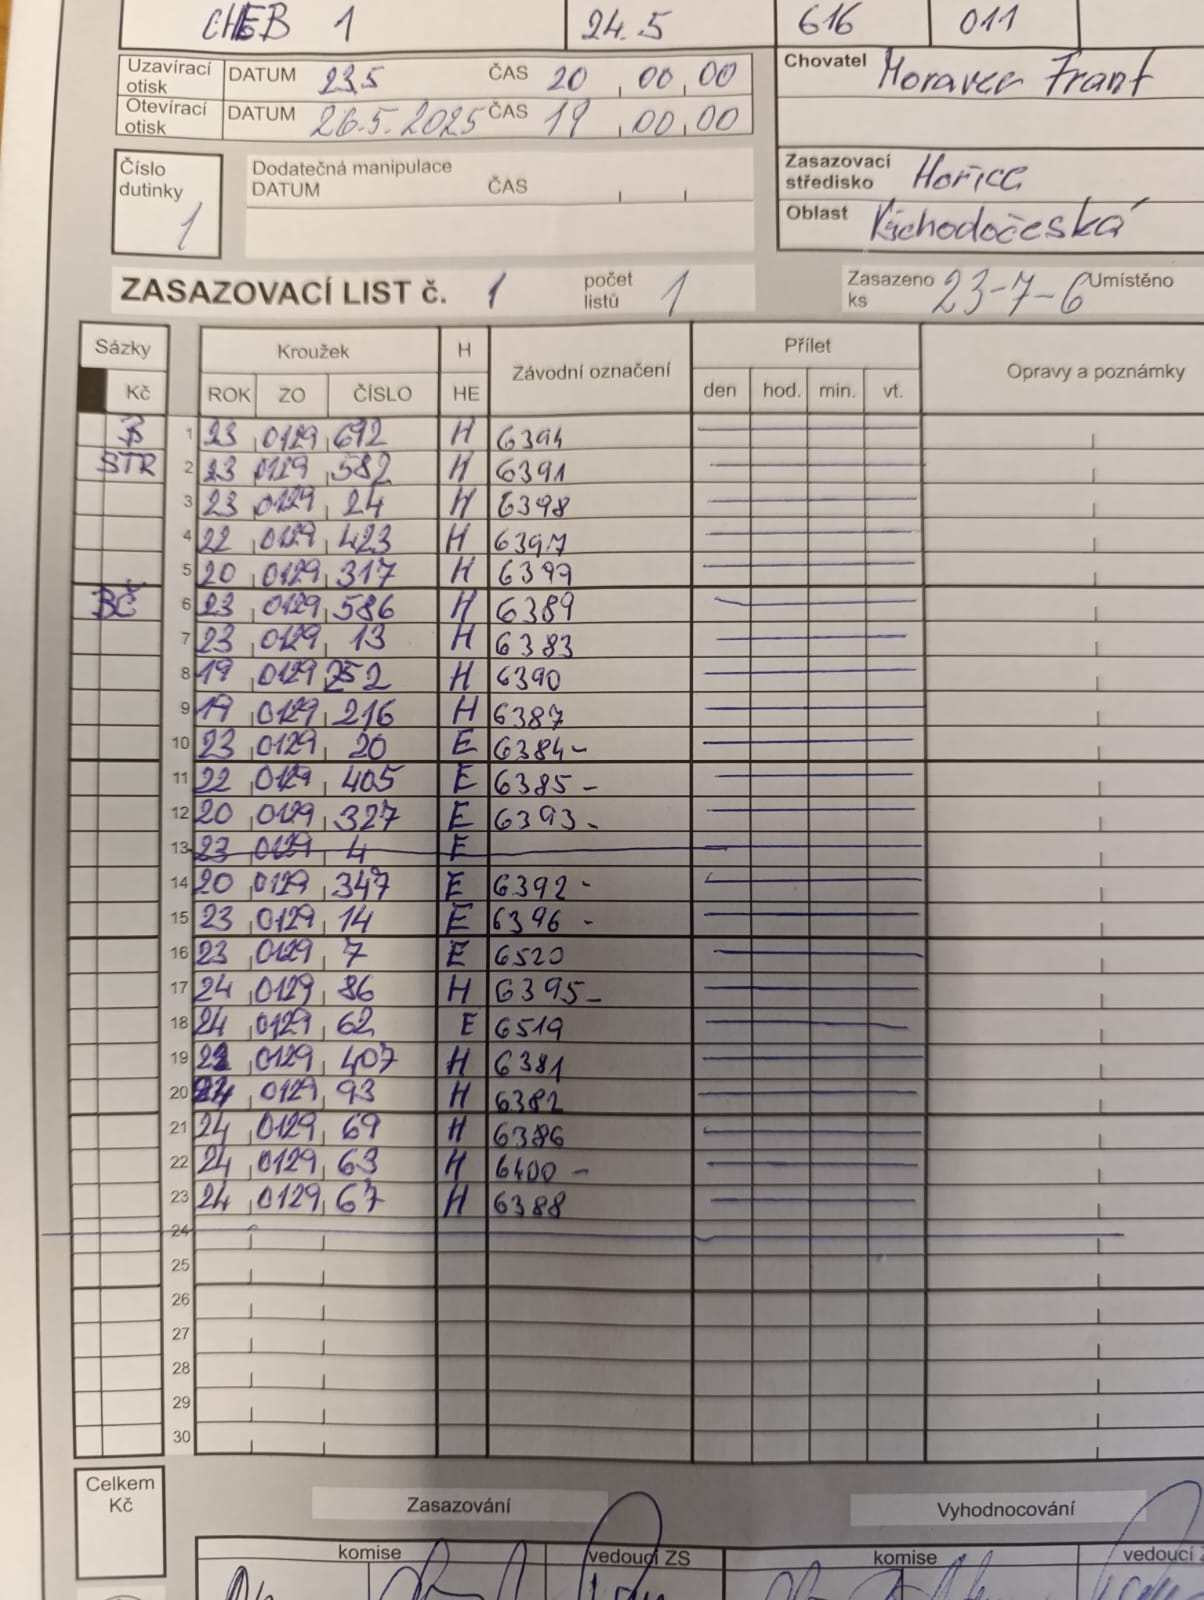 CHEB 1 24.5 616 011
Uzavírací otisk DATUM 23.5 ČAS 20 , 00 , 00
Otevírací otisk DATUM 26.5.2025 ČAS 19 , 00 , 00
Chovatel Moravec Frant
Číslo dutinky 1
Dodatečná manipulace
DATUM ČAS
Zasazovací středisko Hořice
Oblast Východočeská
ZASAZOVACÍ LIST č. 1 počet listů 1 Zasazeno ks 23-7-6 Umístěno
Sázky Kroužek H Závodní označení Přílet Opravy a poznámky
Kč ROK ZO ČÍSLO HE den hod. min. vt.
B 1 23 0129 692 H 6394
STR 2 23 0129 582 H 6391
3 23 0129 24 H 6398
4 22 0129 423 H 6397
5 20 0129 317 H 6399
BČ 6 23 0129 586 H 6389
7 23 0129 13 H 6383
8 19 0129 252 H 6390
9 19 0129 216 H 6387
10 23 0129 20 E 6384-
11 22 0129 405 E 6385-
12 20 0129 327 E 6393-
13 23 0129 4 E
14 20 0129 347 E 6392-
15 23 0129 14 E 6396-
16 23 0129 7 E 6520
17 24 0129 86 H 6395-
18 24 0129 62 E 6519
19 22 0129 407 H 6381
20 24 0129 93 H 6382
21 24 0129 69 H 6386
22 24 0129 63 H 6400-
23 24 0129 67 H 6388
24
25
26
27
28
29
30
Celkem Kč
Zasazování Vyhodnocování
komise vedoucí ZS komise vedoucí